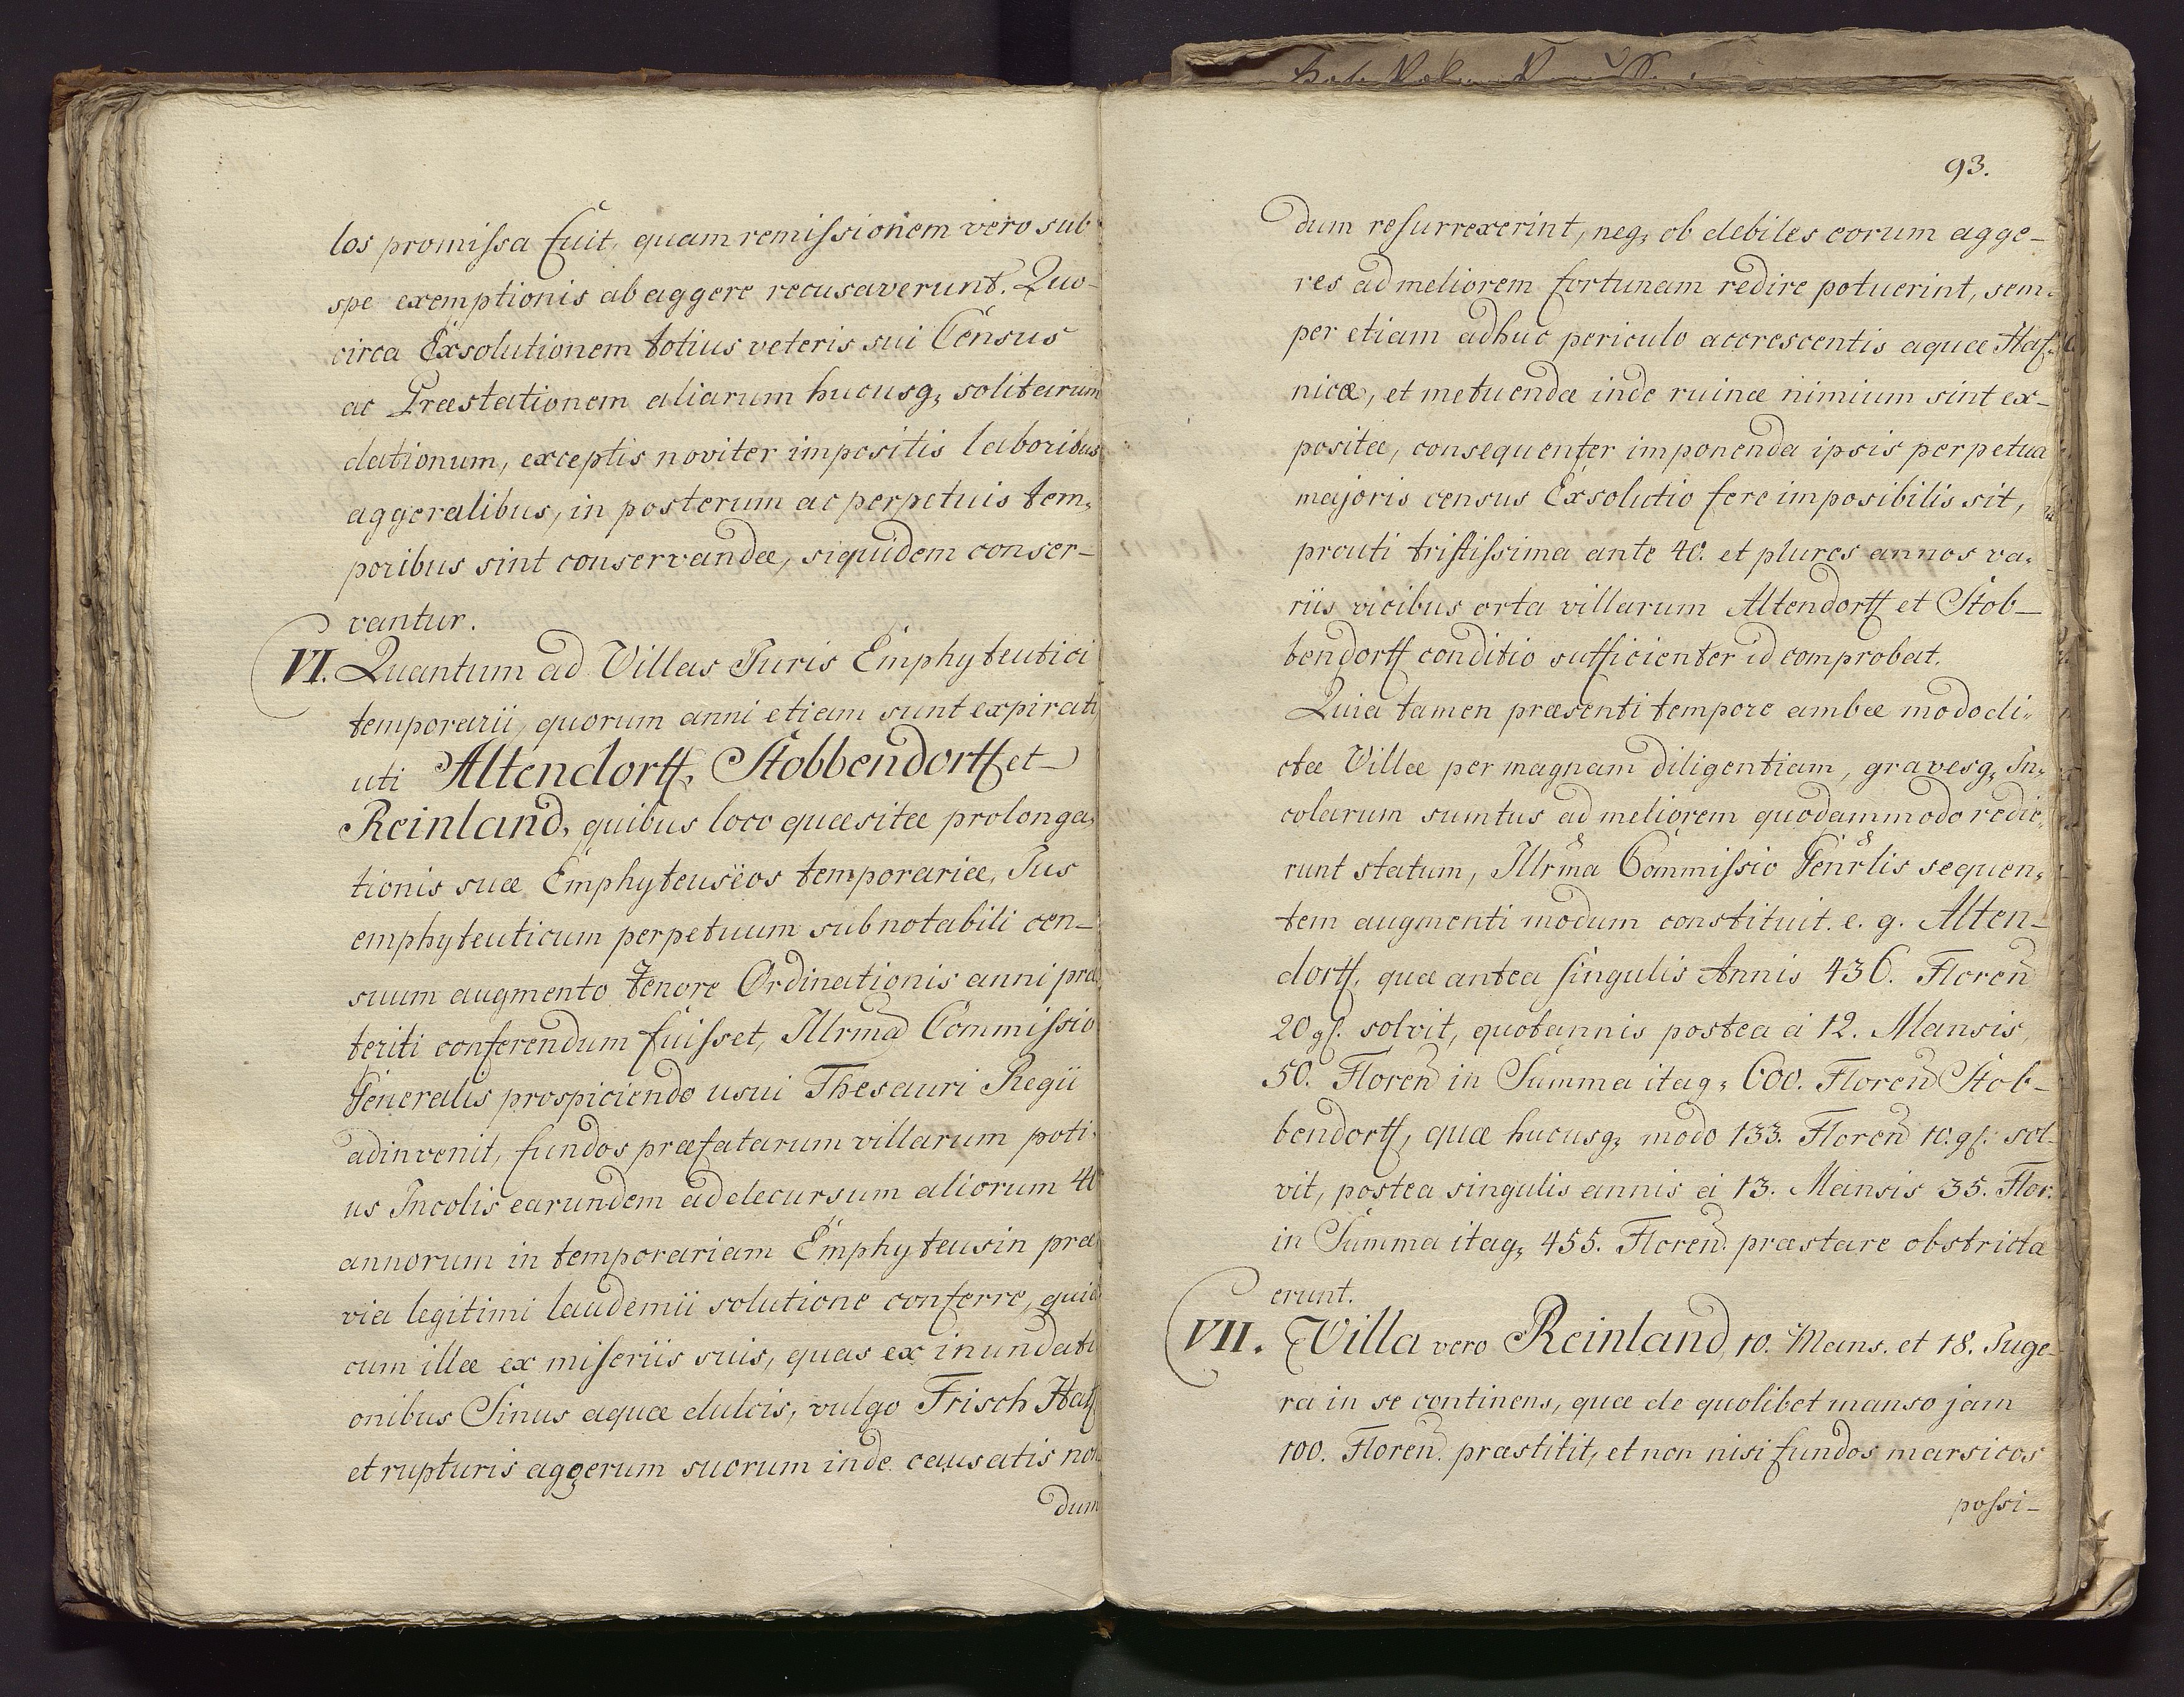 los promissa fuit, quam remissionem vero sub
spe exemptionis ab aggere recusaverunt. Quo-
circa Exsolutionem totius veteris sui Census
ac Præstationem aliarum hucusq; solitarum
dationum, exceptis noviter impositis laboribus
aggeralibus, in posterum ac perpetuis tem,
poribus sint conservandæ, siquidem conser-
vantur.
VI. Quantum ad Villas Juris Emphyteutici
temporarii, quorum anni etiam sunt expirati
uti Altendorff, Stobbendorff et
Reinland, quibus loco quæsitæ prolonga,
tionis suæ Emphyteuseos temporariæ, Jus
emphyteuticum perpetuum sub notabili cen-
suum augmento tenore Ordinationis anni præ,
teriti conferendum fuisset, Illrma Commissio
Generalis prospiciendo usui Thesauri Regii
adinvenit, fundos præfatarum villarum poti,
us Incolis earundem ad decursum aliorum 40
annorum in temporariam Emphyteusin præ
via legitimi laudemii solutione conferre, quia
cum illæ ex miseriis suis, quas ex inundati
onibus Sinus aquæ dulcis, vulgo Frisch Haff
et rupturis aggerum suorum inde causatis non
dum
93.
dum resurrexerint, neq; ob debiles eorum agge-
res ad meliorem fortunam redire potuerint, sem,
per etiam adhuc periculo accrescentis aquæ Haf,
nicæ, et metuendæ inde ruinæ nimium sint ex-
positæ, consequenter imponenda ipsis perpetua
majoris census Exsolutio fere imposibilis sit,
prouti tristissima ante 40. et plures annos va,
riis vicibus orta villarum Altendorff et Stob-
bendorff conditio sufficienter id comprobat.
Quia tamen præsenti tempore ambæ modo di,
ctæ Villæ per magnam diligentiam, gravesq; In,
colarum sumtus ad meliorem quodammodo redie,
runt statum, Illrma Commissio Genrlis sequen,
tem augmenti modum constituit. e. g. Alten-
dorff, quæ antea singulis Annis 436. Floren
20 gs. solvit, quotannis postea à 12. Mansis,
50. Floren in Summa itaq; 600. Floren Stob-
bendorff, quæ hucusq; modo 133. Floren 10. gs. sol-
vit, postea singulis annis à 13. Mansis 35. Flor.
in Summa itaq; 455. Floren. præstare obstricta
erunt.
VII. Villa vero Reinland 10. Mans. et 18. Juge-
ra in se continens, quæ de quolibet manso jam
100. Floren. præstitit, et non nisi fundos marsicos
possi-